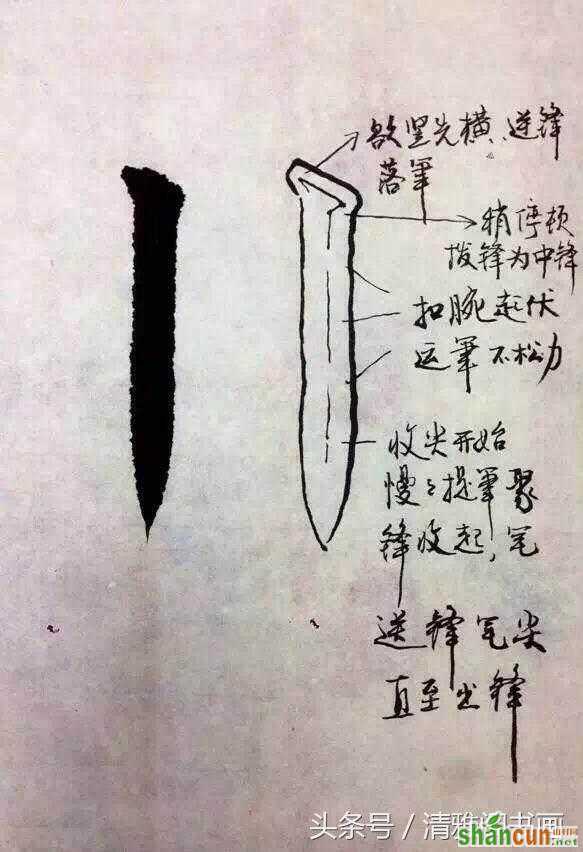 欲竖先横、逆锋
落笔
稍停顿
拨锋为中锋
扣腕起伏
运笔不松力
收尖开始
慢慢提笔聚
锋收起，笔
送锋笔尖
直至出锋
头条号／清雅阁书画
shancun
.net